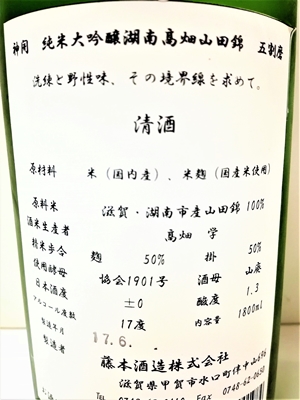 神開 純米大吟醸湖南高畑山田錦 五割磨
洗練と野性味、その境界線を求めて。
清酒
原材料 米(国内産)、米麹(国産米使用)
原料米 滋賀・湖南市産山田錦100%
酒米生産者 高畑 学
精米歩合 麹 50% 掛 50%
使用酵母 協会1901号 酒母 山廃
日本酒度 ±0 酸度 1.3
アルコール度数 17度 内容量 1800ml
製造年月 17.6.
製造者 藤本酒造株式会社
滋賀県甲賀市水口町伴中山696
0748-62-0650